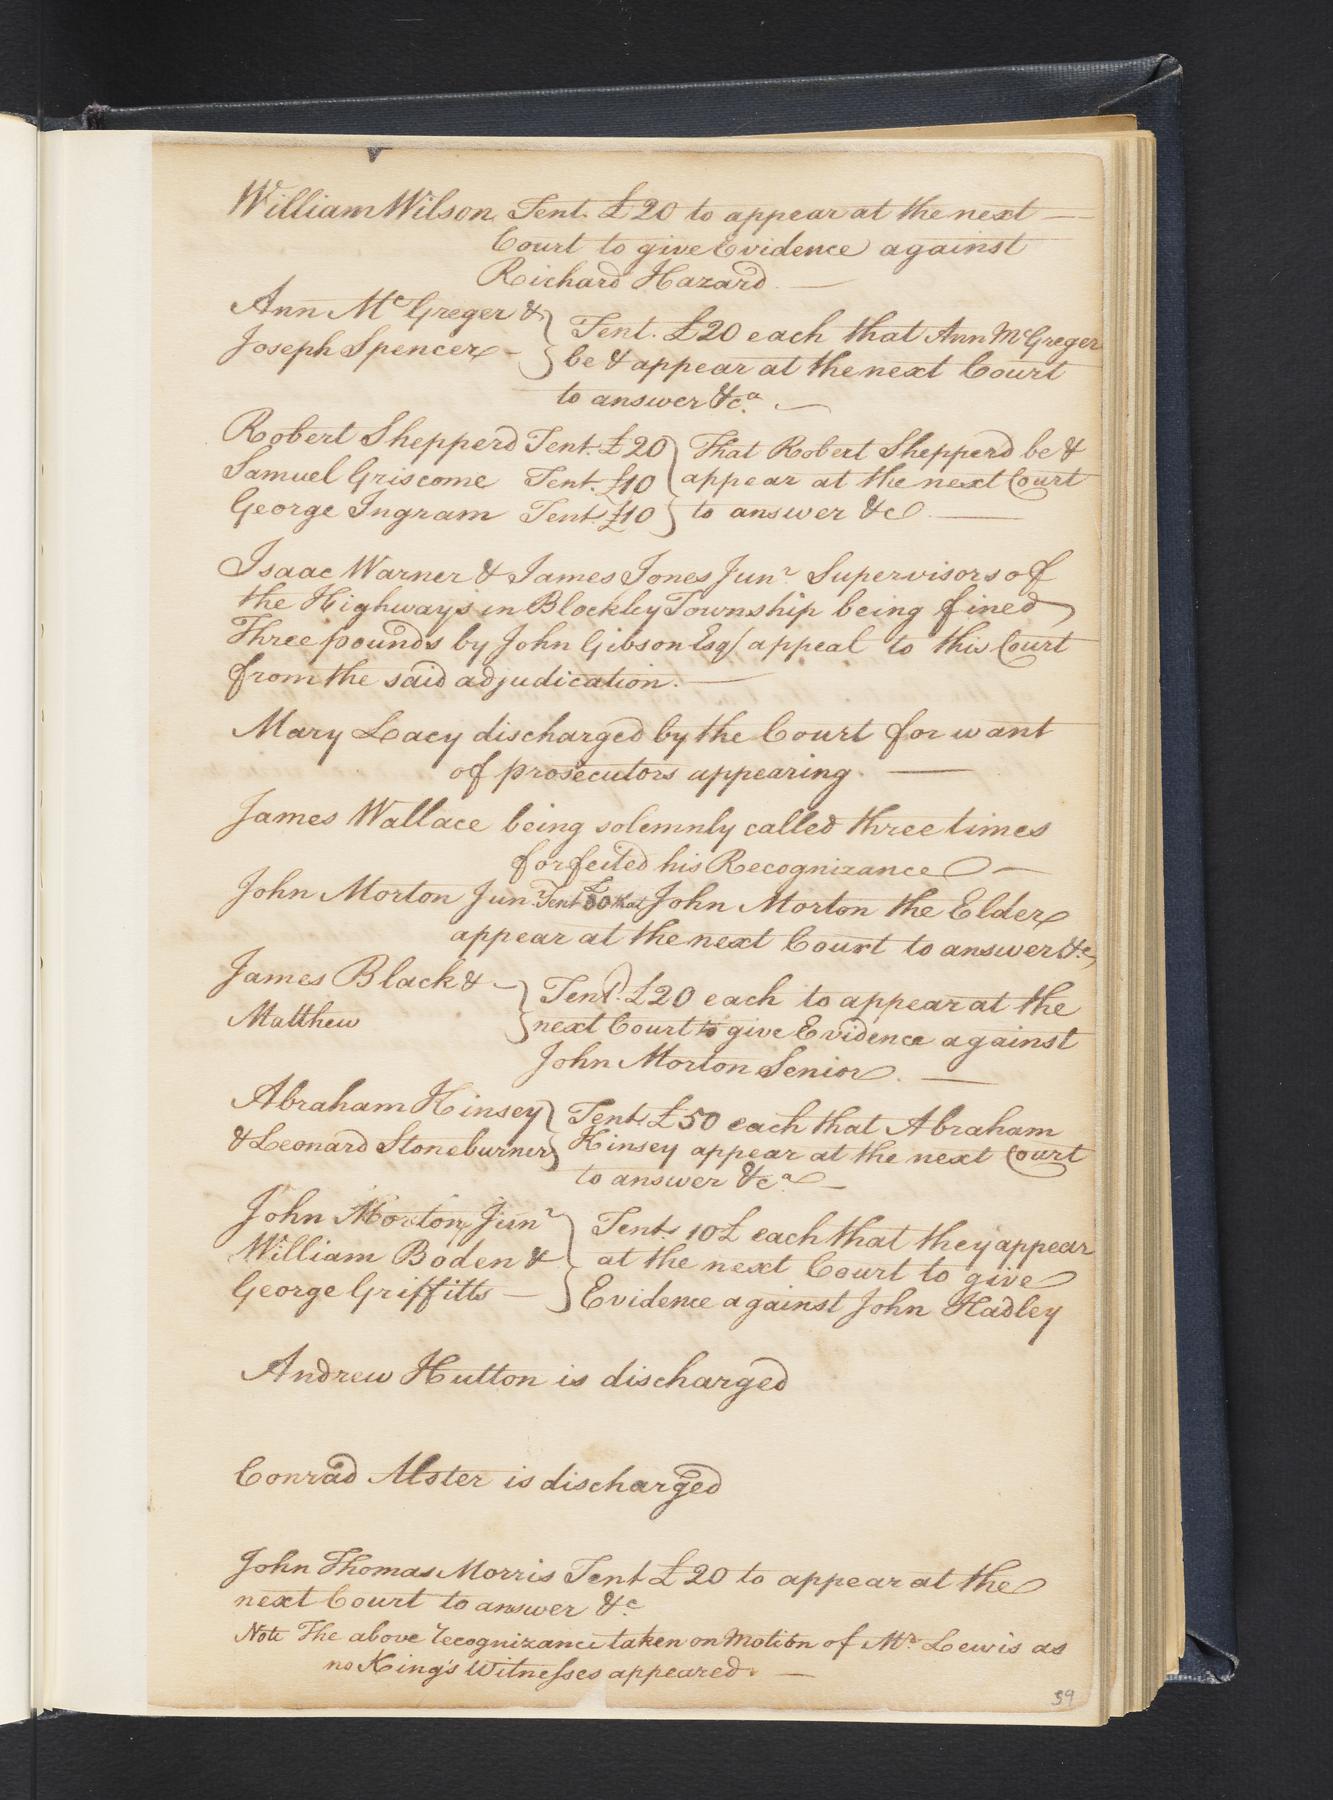 William Wilson Tent. £20 to appear at the next
Court to give Evidence against
Richard Hazard.
Ann McGreger &
Joseph Spencer
Tent. £20 each that Ann McGreger
be & appear at the next Court
to answer &ca.
Robert Shepperd Tent. £20
Samuel Griscome Tent. £10
George Ingram Tent. £10
That Robert Shepperd be &
appear at the next Court
to answer &c
Isaac Warner & James Jones Junr. Supervisors of
the Highways in Blockley Township being fined
Three pounds by John Gibson Esq/ appeal to this Court
from the said adjudication.
Mary Lacy discharged by the Court for want
of prosecutors appearing.
James Wallace being solemnly called three times
forfeited his Recognizance
John Morton Junr. Tent £50 that John Morton the Elder
appear at the next Court to answer &c
James Black &
Matthew
Tent. £20 each to appear at the
next Court to give Evidence against
John Morton Senior.
Abraham Kinsey
& Leonard Stoneburner
Tent. £50 each that Abraham
Kinsey appear at the next Court
to answer &ca
John Morton Junr
William Boden &
George Griffitts
Tent. 10£ each that they appear
at the next Court to give
Evidence against John Hadley
Andrew Hutton is discharged
Conrad Alster is discharged
John Thomas Morris Tent £20 to appear at the
next Court to answer &c
Note The above recognizance taken on Motion of Mr. Lewis as
no King's Witnesses appeared.
59